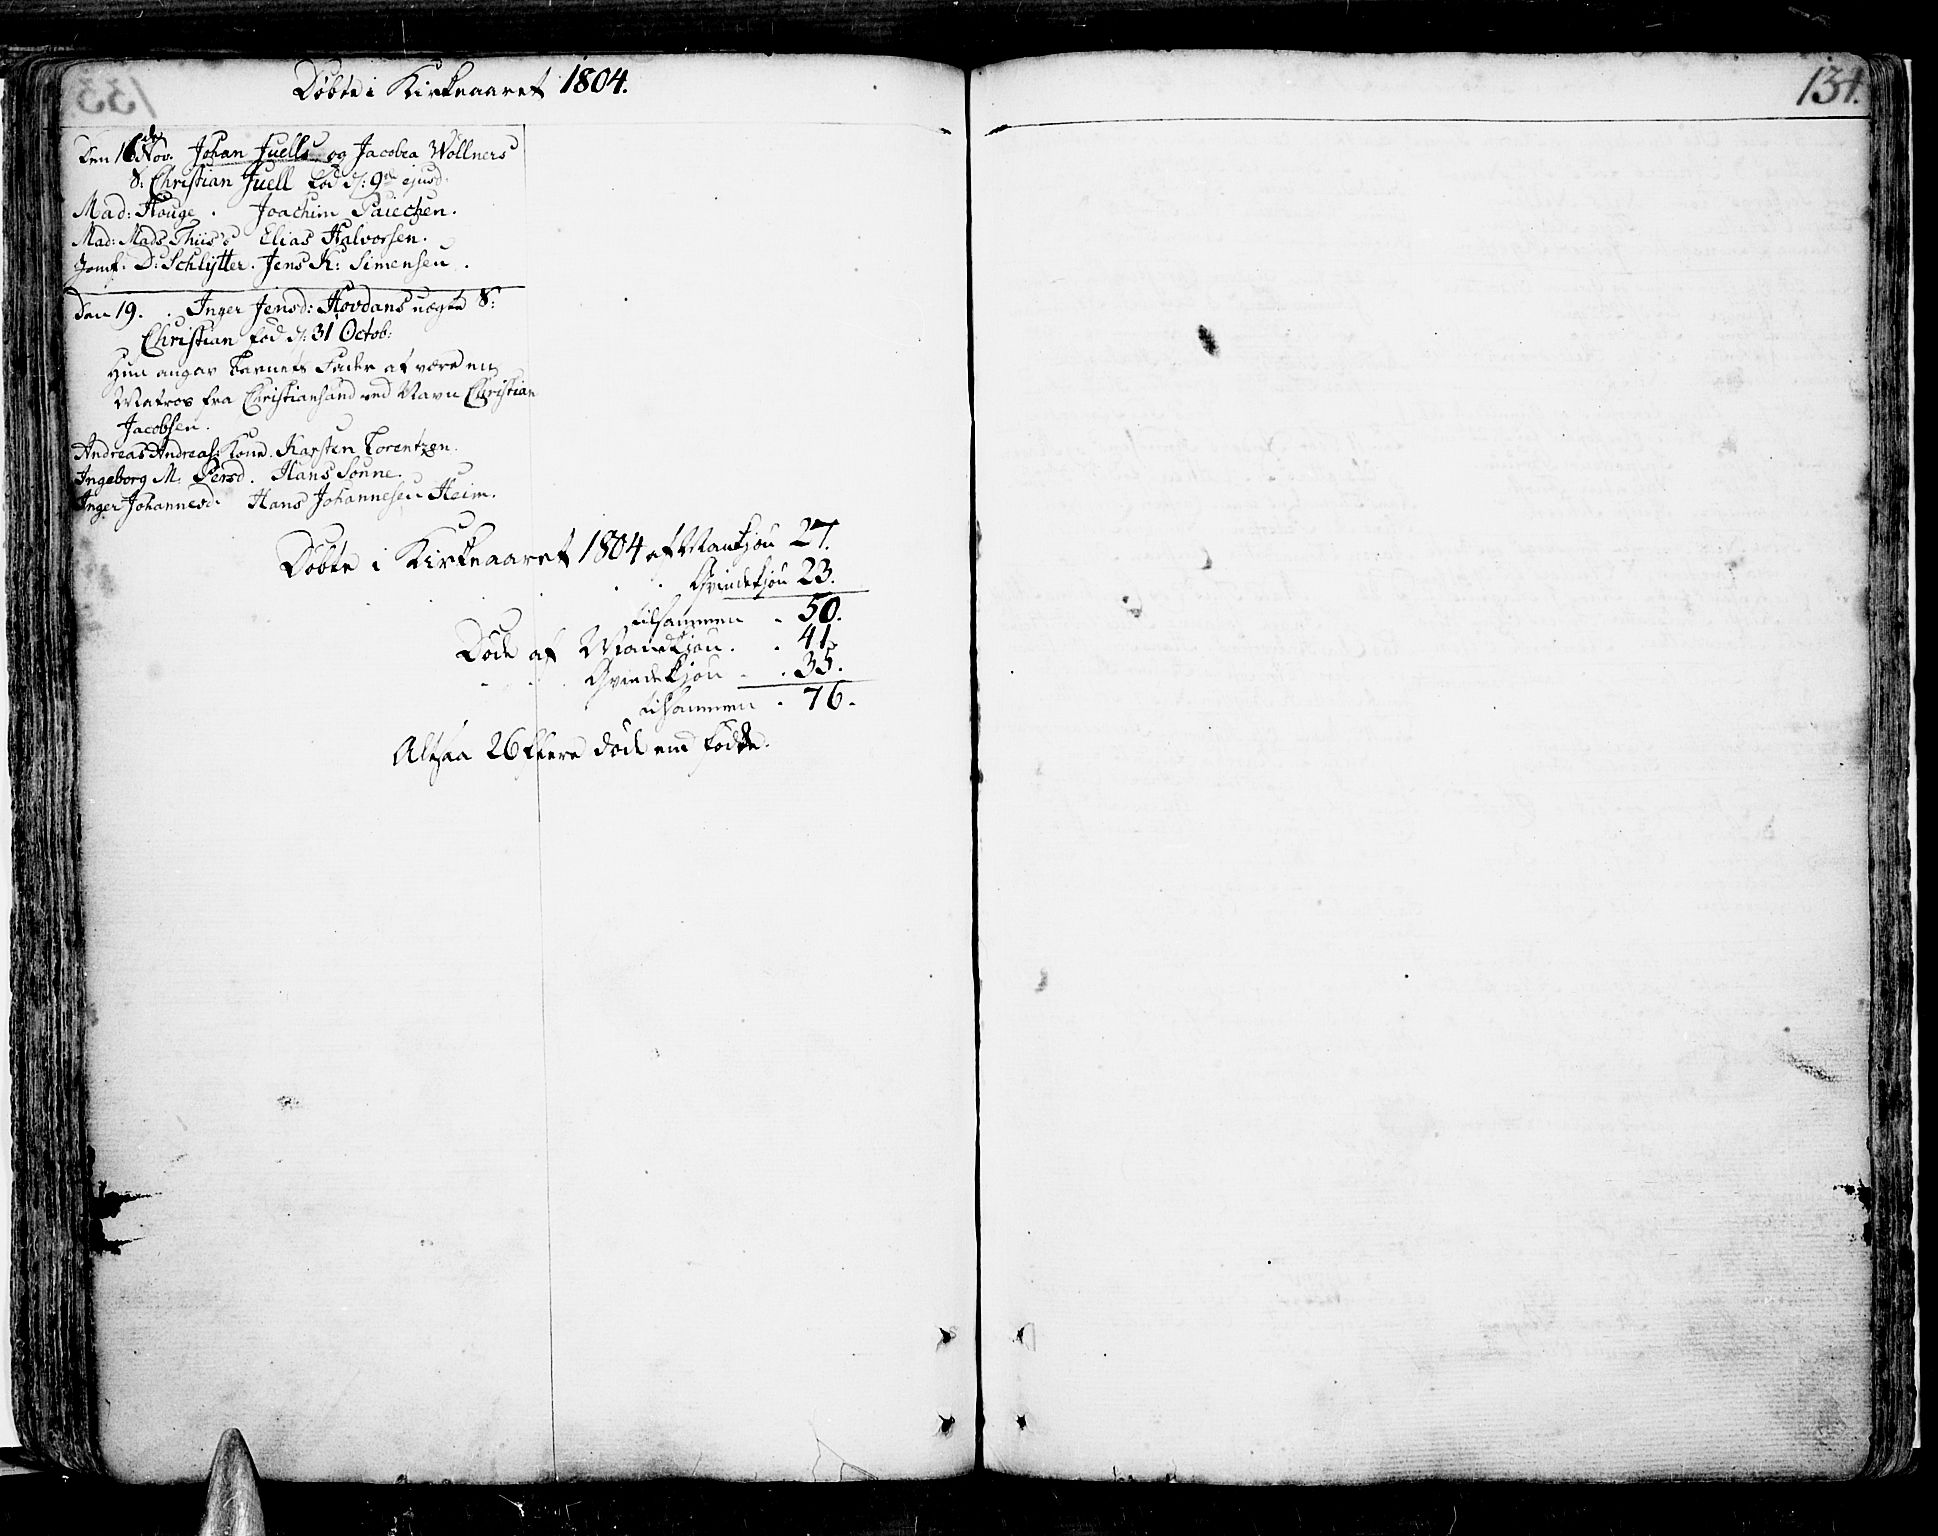 Døbte i Kirkeaaret 1804.
134.
Den 16de Nov. Johan Juells og Jacobea Wollners
S: Christian Juell fød d: 9de ejusd:
Mad: Houge. Joachim
Mad: Mads Thiis's Elias Halvorsen.
Jomf. D: Schlytter. Jens K: Simensen.
Den 19. Inger Jensd: Hovdans uægte S:
Christian fød d: 31 Octob:
Hun angav Barnets Fader at være en
Matros fra Christiansand ved Navn Christian
Jacobsen.
Andreas Andreas: Kone. Karsten Lorentzen.
Ingeborg M. Persd. Hans Sønne.
Inger Johannesd. Hans Johannesen Heim.
Døbte i Kirkeaaret 1804 af Mankjøn 27.
Qvindekjøn 23.
tilsammen . 50.
Døde af Mandkjøn . . 41.
Qvindekjøn . . 35.
tilsammen . 76.
Altsaa 26 flere døde end fødte.